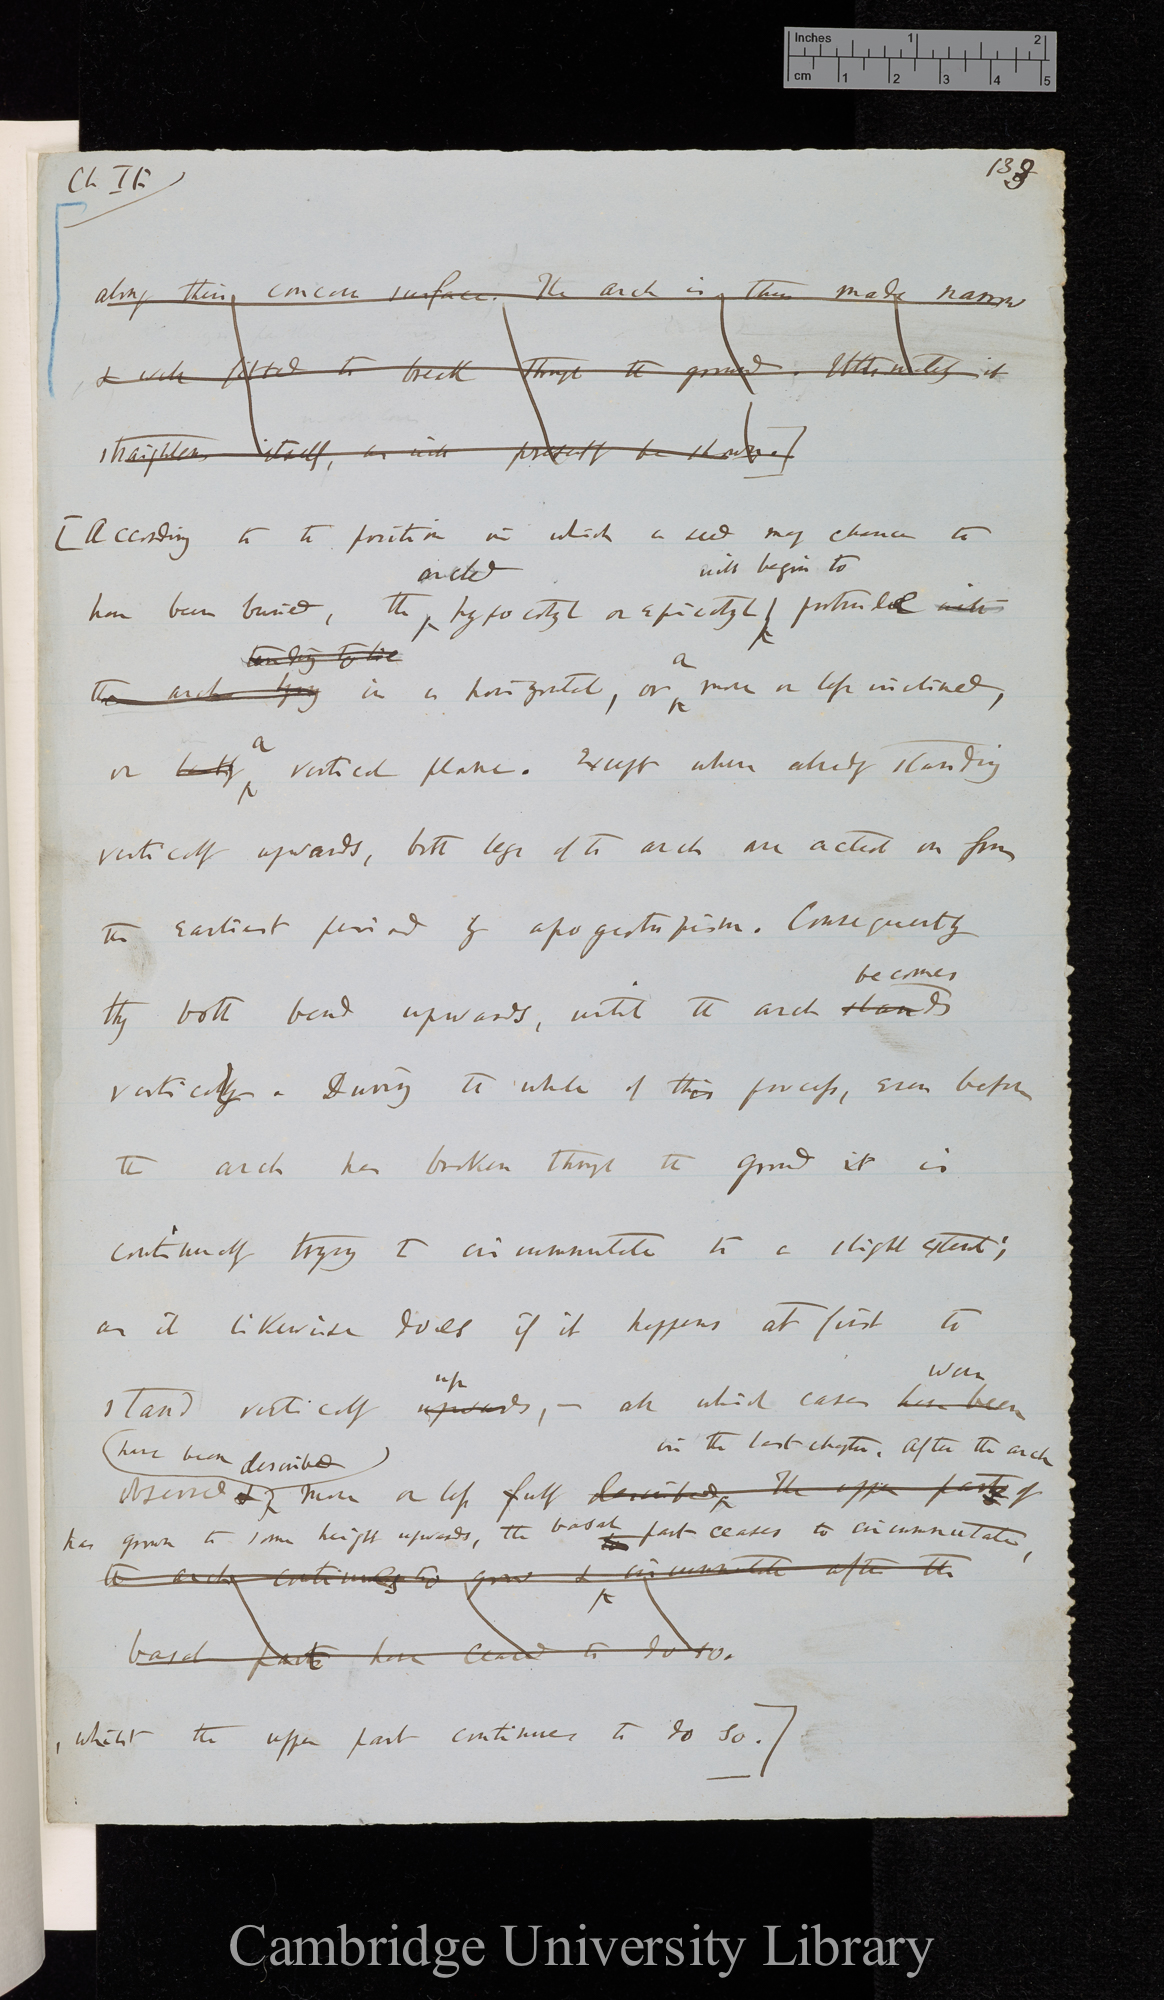 Inches 1 2
cm 1 2 3 4 5
Ch II
139
along their concave surface. The arch is thus made narrow
& well fitted to break through the ground. Ultimately it
straightens itself, as will presently be shown.]
[According to the position in which a seed may chance to
arched will begin to
have been buried, the hypocotyl or epicotyl protrude with
tending to lie
the arch lying in a horizontal, or a more or less inclined,
or a vertical plane. Except when already standing
vertically upwards, both legs of the arch are acted on from
the earliest period by apogeotropism. Consequently
becomes
they both bend upwards, until the arch stands
vertically. During the whole of this process, even before
the arch has broken through the ground it is
continually trying to circumnutate to a slight extent;
as it likewise does if it happens at first to
up were
stand vertically upwards, – all which cases have been
have been described in the last chapter. After the arch
observed & more or less fully described. The upper part of
has grown to some height upwards, the basal part ceases to circumnutate,
the arch continues to grow & circumnutate after the
basal part have ceased to do so.
, whilst the upper part continues to do so.]
Cambridge University Library